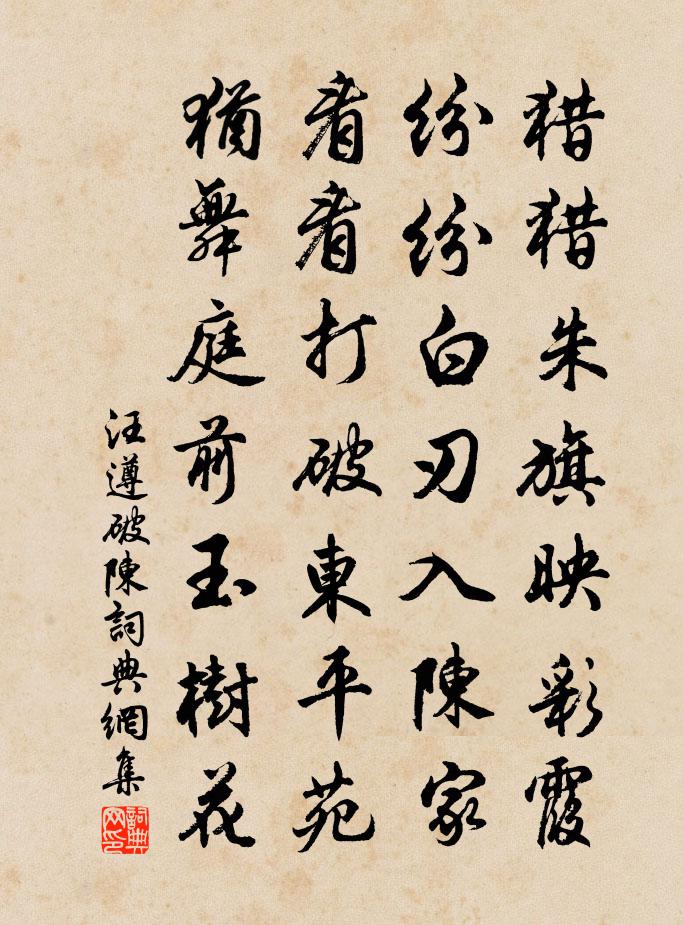 猎猎朱旗映彩霞
纷纷白刃入陳家
看看打破東平苑
猶舞庭前玉樹花
汪遵破陳詞典網集
詞典網印